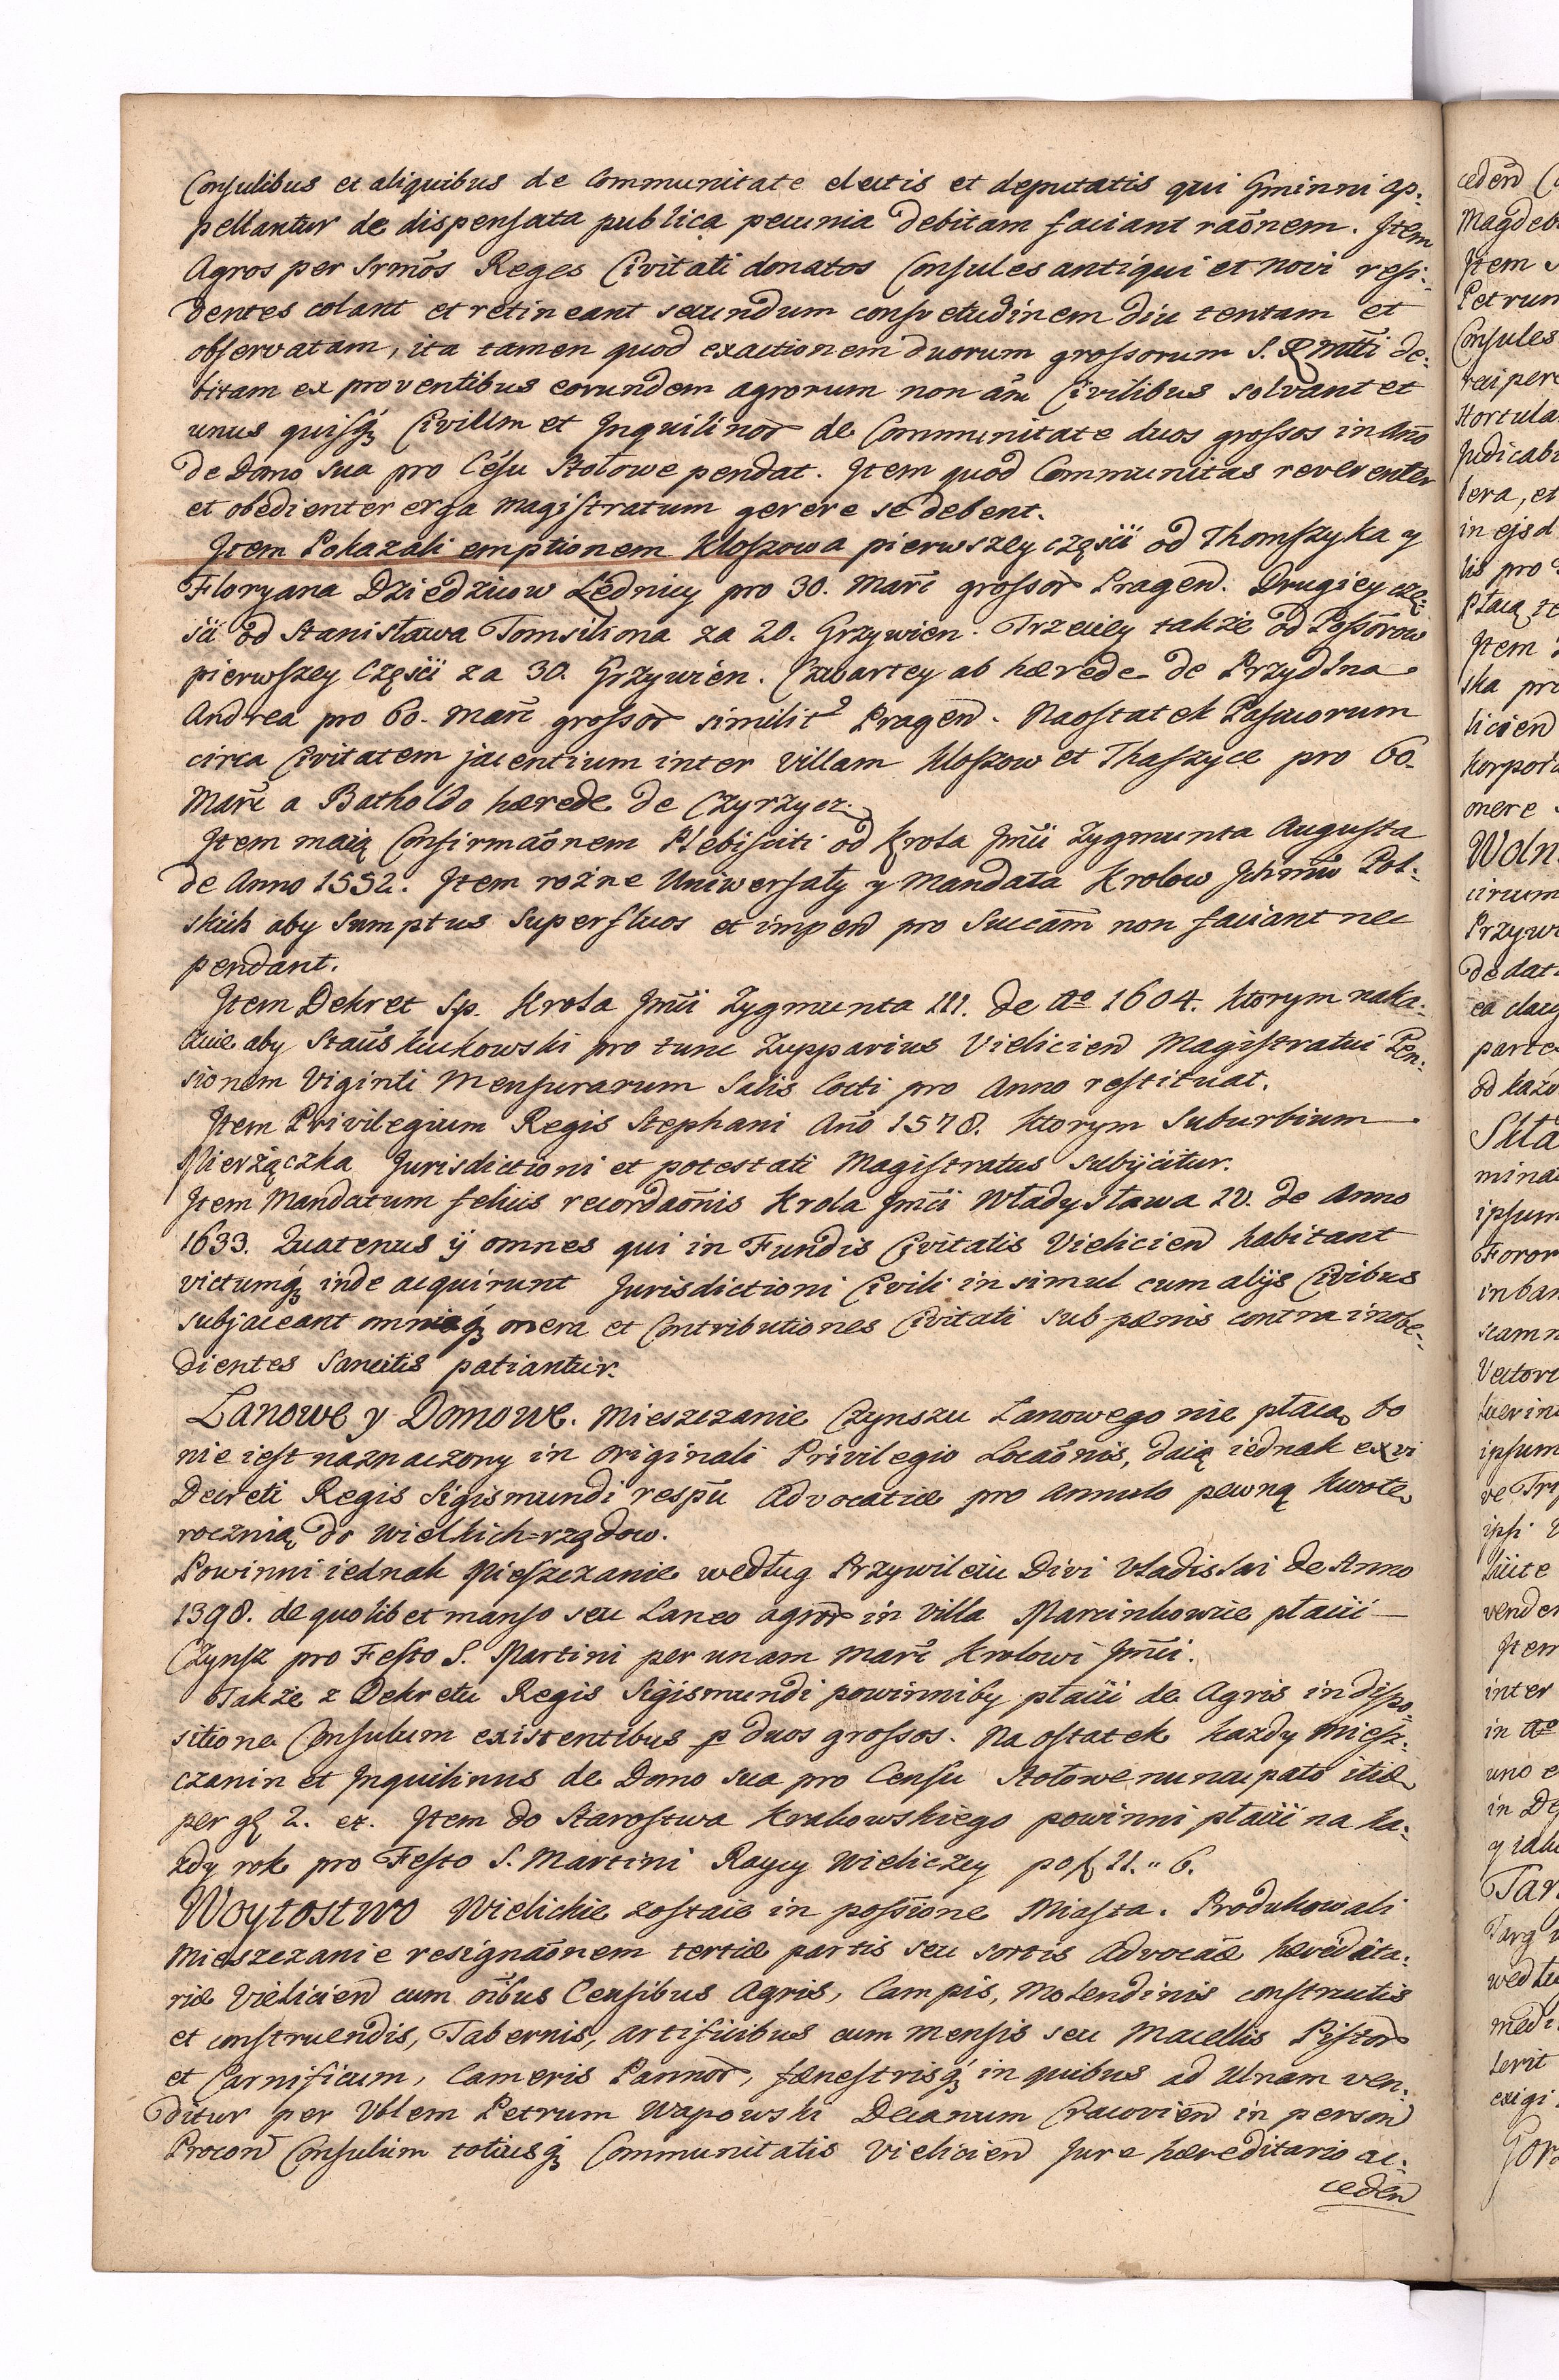 Consulibus et aliquibus de Communitate electis et deputatis qui Gminni ap:
pellantur de dispensata publica pecunia debitam faciant raõnem. Item
Agros per Srmos Reges Civitati donatos Consules antiqui et novi resi:
dentes colant et retineant secundum consvetudinem diu tentam et
observatam, ita tamen quod exactionem duorum grossorum S. R. Mtti de:
bitam ex proventibus eorundem agrorum non am̃ Civilibus solvant et
unus quisq́ʒ Civilem et Inquilinor̃ de Communitate duos grossos in Año
de Domo sua pro Césu Stołowe pendat. Item quod Communitas reverenter
et obedienter erga Magistratum gerere se debent.
Item Pokazali emptionem Kloszowa pierwszey części od Thomszyka y
Floryana Dziedzicow Lednicy pro 30. Marc̃ grossor̃ Pragen̄. Drugiey czę:
ści od Stanisława Tomsikona za 20. Grzywien. Trzeciey także od Possorow
pierwszey Części za 30. Grzywien. Czwartey ab hærede de Przydna
Andrea pro 60. Marc̃ grossor̃ similit' Pragen̄. Naostatek Pascuorum
circa Civitatem jacentium inter villam Kloszow et Thaszyce pro 60.
Marc̃ a Batholdo hærede de Czyrzycz.
Item maią Confirmaõnem Plebisciti od Krola Jm̃ci Zygmunta Augusta
de Anno 1552. Item rożne Uniwersały y Mandata Krolow Ichmciow Pol:
skich aby Sumptus Superfluos et impen̄ pro Succam̃ non faciant nec
pendant.
Item Dekret Sp. Krola Jm̃ci Zygmunta III. de Ao 1604. ktorym naka:
zuie aby Stan̄s Kuckowski pro tunc Zupparius Vielicien̄ Magistratui Pen:
sionem Viginti Mensurarum Salis Cocti pro Anno restituat.
Item Privilegium Regis Stephani Año 1578. ktorym Suburbium
Mierżączka Jurisdictioni et potestati Magistratus subijcitur.
Item Mandatum felicis recordaõnis Krola Jm̃ci Władysława IV. de Anno
1633. Quatenus ij omnes qui in Fundis Civitatis Vielicien̄ habitant
victumq́ʒ inde acquirunt Jurisdictioni Civili insimul cum alijs Civibus
subjaceant omniaq́ʒ onera et Contributiones Civitati sub pænis contra inobe:
dientes sancitis patiantur.
Łanowe y Domowe. Mieszczanie Czynszu Łanowego nie płacą bo
nie iest naznaczony in Originali Privilegio Locaõnis, daią iednak ex vi
Decreti Regis Sigismundi respu̅ Advocatiæ pro Annulo pewną kwotę
rocznią do Wielkich-rządow.
Powinni iednak Mieszczanie według Przywileiu Divi Vladislai de Anno
1398. de quolibet manso seu Laneo agror̃ in Villa Marcinkowice płacić
Czynsz pro Festo S. Martini per unam Marc̃ Krolowi Jm̃ci.
Także z Dekretu Regis Sigismundi powinniby płacić de Agris in dispo:
sitione Consulum existentibus p duos grossos. Na ostatek każdy Miesz:
czanin et Inquilinus de Domo sua pro Censu Stołowe nuncupato itid̄
per gę 2. ex. Item do Starostwa Krakowskiego powinni płacić na ka:
żdy rok pro Festo S. Martini Raycy Wieliczcy po f. 11.,, 6.
Woytostwo Wielickie zostaie in possione Miasta. Produkowali
Mieszczanie resignaõnem tertiæ partis seu sortis Advocãæ hæredita:
riæ Vielicien̄ cum oĩbus Censibus Agris, Campis, Molendinis constructis
et construendis, Tabernis, artificibus cum mensis seu Macellis Pistor̃
et Carnificum, Cameris Pannor̃, fænestrisq́ʒ in quibus ad Ulnam ven:
ditur per Vblem Petrum Wapowski Decanum Cracovien̄ in person̄
Procon̄ Consulum totiusq́ʒ Communitatis Vielicien̄ Jure hæreditario ac:
ceden̄